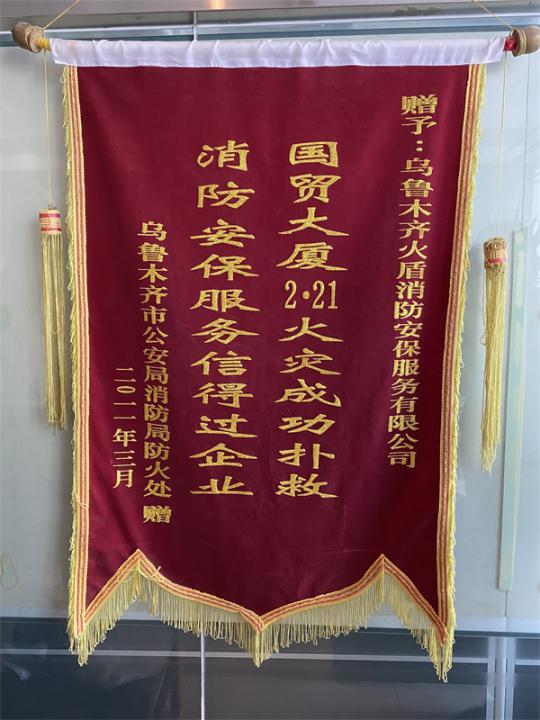 赠予：乌鲁木齐火盾消防安保服务有限公司
国贸大厦2·21火灾成功扑救
消防安保服务信得过企业
乌鲁木齐市公安局消防局防火处 赠
二〇一一年三月